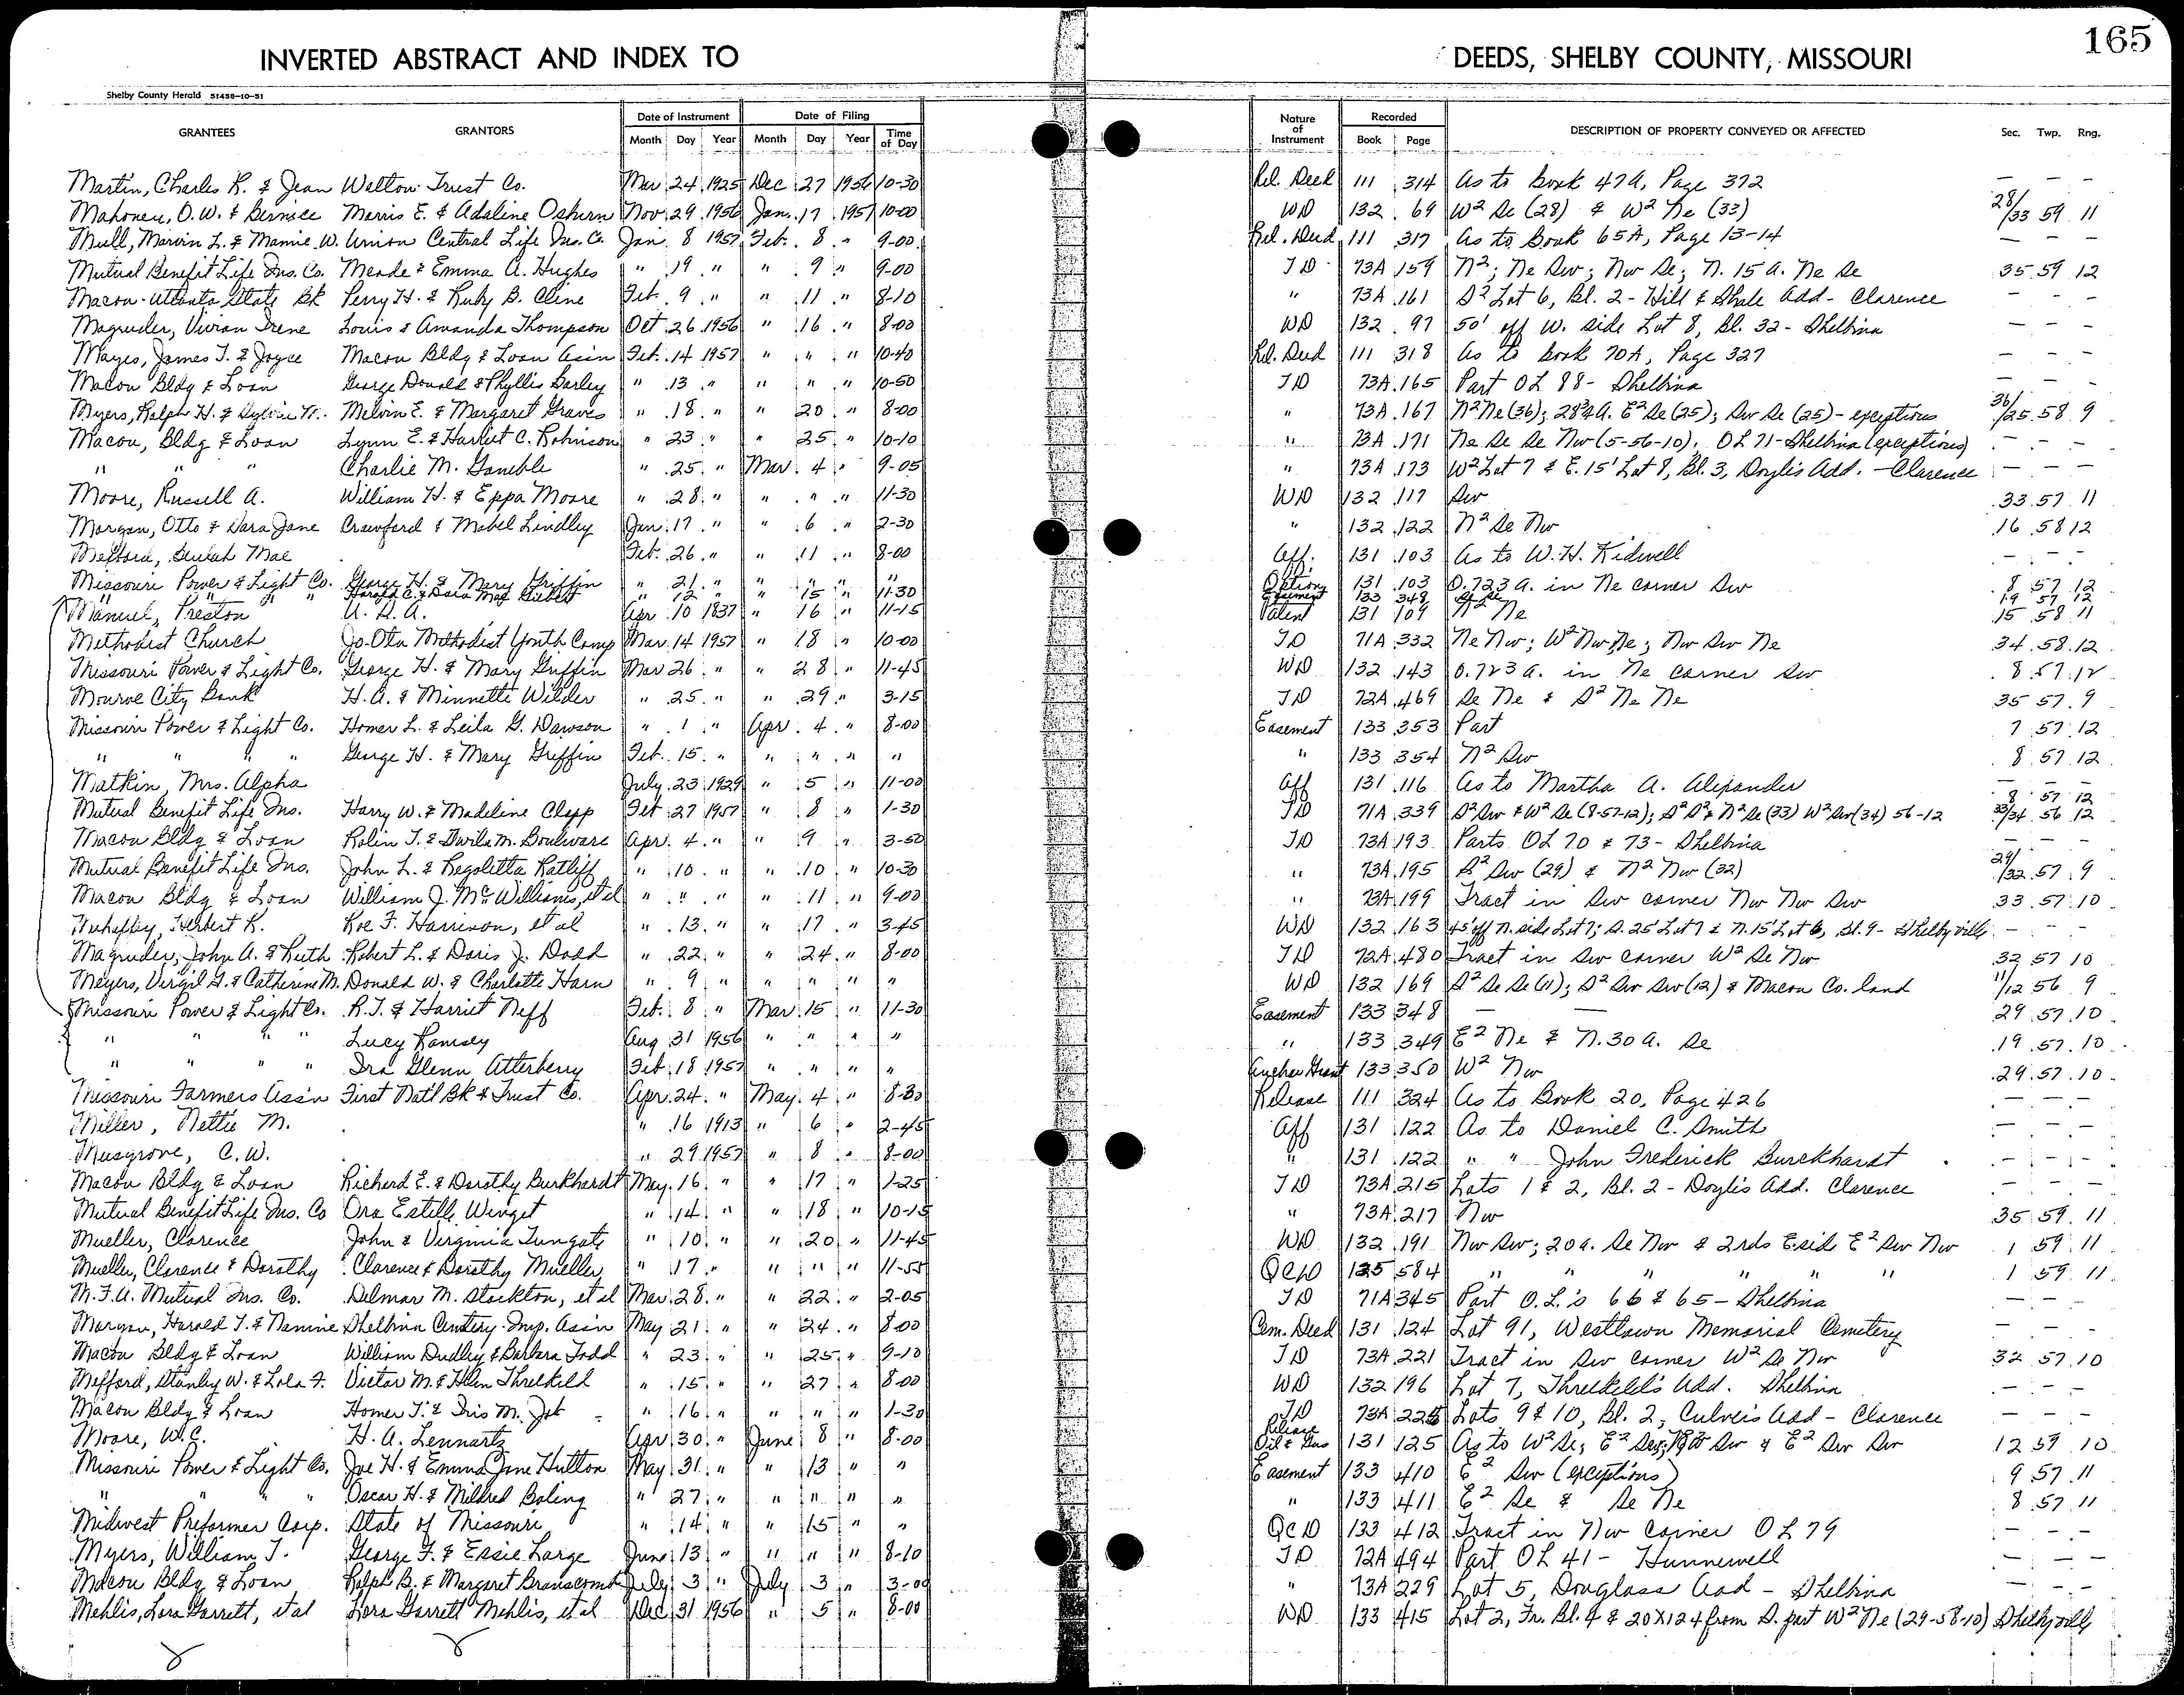 165
INVERTED ABSTRACT AND INDEX TO DEEDS, SHELBY COUNTY, MISSOURI
Shelby County Herald 51458-10-51
GRANTEES GRANTORS Date of Instrument Month Day Year Date of Filing Month Day Year Time of Day Nature of Instrument Recorded Book Page DESCRIPTION OF PROPERTY CONVEYED OR AFFECTED Sec. Twp. Rng.
Martin, Charles R. & Jean Walton Trust Co. Mar 24 1925 Dec 27 1956 10-30 Rel. Deed 111 314 As to Book 47A, Page 372 — — —
Mahoney, O.W. & Bernice Morris E. & Adaline Osburn Nov 29 1956 Jan. 17 1957 10-00 WD 132 69 W² Se (28) & W² Ne (33) 28/33 59 11
Mull, Marvin L. & Mamie W. Union Central Life Ins. Co. Jan 8 1957 Feb. 8 " 9-00 Rel. Deed 111 317 As to Book 65A, Page 13-14 — — —
Mutual Benefit Life Ins. Co. Meade & Emma A. Hughes " 19 " " 9 " 9-00 TD 73A 159 N²; Ne Sw; Nw Se; N. 15 a. Ne Se 35 59 12
Macon-Atlanta State Bk Perry H. & Ruby B. Cline Feb. 9 " " 11 " 8-10 " 73A 161 S² Lot 6, Bl. 2 - Hill & Shale Add - Clarence — — —
Magruder, Vivian Irene Louis & Amanda Thompson Oct 26 1956 " 16 " 8-00 WD 132 97 50' off W. side Lot 8, Bl. 32 - Shelbina — — —
Mayes, James T. & Joyce Macon Bldg & Loan Ass'n Feb. 14 1957 " " " 10-40 Rel. Deed 111 318 As to Book 70A, Page 327 — — —
Macon Bldg & Loan George Donald & Phyllis Garley " 13 " " " " 10-50 TD 73A 165 Part OL 88 - Shelbina — — —
Myers, Ralph H. & Sylvia M. Melvin E. & Margaret Graves " 18 " " 20 " 8-00 " 73A 167 N² Ne (36); 28¾ a. E² Se (25); Sw Se (25) - exceptions 36/25 58 9
Macon, Bldg & Loan Lynn E. & Harriet C. Robinson " 23 " " 25 " 10-10 " 73A 171 Ne Se Se Nw (5-56-10), OL 71 - Shelbina (exceptions) — — —
" " " Charlie M. Gamble " 25 " Mar. 4 " 9-05 " 73A 173 W² Lot 7 & E. 15' Lot 8, Bl. 3, Doyle's Add. - Clarence — — —
Moore, Russell A. William H. & Eppa Moore " 28 " " " " 11-30 WD 132 117 Sw 33 57 11
Morgan, Otto & Sara Jane Crawford & Mabel Lindley Jan. 17 " " 6 " 2-30 " 132 122 N² Se Nw 16 58 12
Mefford, Beulah Mae Feb. 26 " " 11 " 8-00 Aff. 131 103 As to W. H. Kidwell — — —
Missouri Power & Light Co. George H. & Mary Griffin " 21 " " " " " Option 131 103 0.723 a. in Ne corner Sw 8 57 12
" " " " Harold C. & Dora May Gilbert " 12 " " 15 " 11-30 Easement 133 348 19 57 12
Manuel, Preston U. S. A. Apr 10 1837 " 16 " 11-15 Patent 131 109 N² Ne 15 58 11
Methodist Church Jo-Ota Methodist Youth Camp Mar. 14 1957 " 18 " 10-00 TD 71A 332 Ne Nw; W² Nw Ne; Nw Sw Ne 34 58 12
Missouri Power & Light Co. George H. & Mary Griffin Mar 26 " " 28 " 11-45 WD 132 143 0.723 a. in Ne corner Sw 8 57 12
Monroe City Bank H. A. & Minnette Wilder " 25 " " 29 " 3-15 TD 72A 469 Se Ne & S² Ne Ne 35 57 9
Missouri Power & Light Co. Homer L. & Leila G. Dawson " 1 " Apr. 4 " 8-00 Easement 133 353 Part 7 57 12
" " " " George H. & Mary Griffin Feb. 15 " " " " " " 133 354 N² Sw 8 57 12
Matkin, Mrs. Alpha July 23 1929 " 5 " 11-00 Aff 131 116 As to Martha A. Alexander — — —
Mutual Benefit Life Ins. Harry W. & Madeline Clapp Feb 27 1957 " 8 " 1-30 TD 71A 339 S² Sw & W² Se (8-57-12); S² S² & N² Se (33) W² Sw (34) 56-12 8 57 12 33/34 56 12
Macon Bldg & Loan Rolin T. & Twila M. Boulware Apr. 4 " " 9 " 3-50 TD 73A 193 Parts OL 70 & 73 - Shelbina — — —
Mutual Benefit Life Ins. John L. & Regoletta Ratliff " 10 " " 10 " 10-30 " 73A 195 S² Sw (29) & N² Nw (32) 29/32 57 9
Macon Bldg & Loan William J. McWilliams, et al " " " " 11 " 9-00 " 73A 199 Tract in Sw corner Nw Nw Sw 33 57 10
Herbert K. Roe F. Harrison, et al " 13 " " 17 " 3-45 WD 132 163 45' off N. side Lot 7; S. 25' Lot 7 & N. 15' Lot 6, Bl. 9 - Shelbyville — — —
Magruder, John A. & Ruth Robert L. & Doris J. Dodd " 22 " " 24 " 8-00 TD 72A 480 Tract in Sw corner W² Se Nw 32 57 10
Meyers, Virgil G. & Catherine M. Donald W. & Charlotte Harn " 9 " " " " " WD 132 169 S² Se Se (11); S² Sw Sw (12) & Macon Co. land 11/12 56 9
Missouri Power & Light Co. R. T. & Harriet Neff Feb. 8 " Mar. 15 " 11-30 Easement 133 348 — — 29 57 10
" " " " Lucy Ramsey Aug 31 1956 " " " " " 133 349 E² Ne & N. 30 a. Se 19 57 10
" " " " Ira Glenn Atterberry Feb. 18 1957 " " " " Anchor Grant 133 350 W² Nw 29 57 10
Missouri Farmers Ass'n First Nat'l Bk & Trust Co. Apr. 24 " May. 4 " 8-30 Release 111 324 As to Book 20, Page 426 — — —
Miller, Nettie M. " 16 1913 " 6 " 2-45 Aff 131 122 As to Daniel C. Smith — — —
Musgrove, C. W. " 29 1957 " 8 " 8-00 " 131 122 " " John Frederick Burckhardt — — —
Macon Bldg & Loan Richard E. & Dorothy Burkhardt May. 16 " " 17 " 1-25 TD 73A 215 Lots 1 & 2, Bl. 2 - Doyle's Add. Clarence — — —
Mutual Benefit Life Ins. Co Ora Estelle Winget " 14 " " 18 " 10-15 " 73A 217 Nw 35 59 11
Mueller, Clarence John & Virginia Tungate " 10 " " 20 " 11-45 WD 132 191 Nw Sw; 20 a. Se Nw & 2rds E. side E² Sw Nw 1 59 11
Mueller, Clarence & Dorothy Clarence & Dorothy Mueller " 17 " " " " 11-55 QCD 125 584 " " " " " " 1 59 11
M.F.A. Mutual Ins. Co. Delmar M. Stockton, et al Mar. 28 " " 22 " 2-05 TD 71A 345 Part O.L.'s 66 & 65 - Shelbina — — —
Morgan, Harold T. & Nannie Shelbina Cemetery Imp. Ass'n May 21 " " 24 " 8-00 Cem. Deed 131 124 Lot 91, Westlawn Memorial Cemetery — — —
Macon Bldg & Loan William Dudley & Barbara Todd " 23 " " 25 " 9-10 TD 73A 221 Tract in Sw corner W² Se Nw 32 57 10
Mefford, Stanley W. & Lola F. Victor M. & Helen Threlkeld " 15 " " 27 " 8-00 WD 132 196 Lot 7, Threlkeld's Add. Shelbina — — —
Macon Bldg & Loan Homer T. & Iris M. Job " 16 " " " " 1-30 TD 73A 225 Lots 9 & 10, Bl. 2, Culver's Add - Clarence — — —
Moore, W.C. H. A. Lennartz Apr 30 " June 8 " 8-00 Release Oil & Gas 131 125 As to W² Se; E² Sw & E² Sw Sw 12 59 10
Missouri Power & Light Co. Joe H. & Emma Jane Hutton May 31 " " 13 " " Easement 133 410 E² Sw (exceptions) 9 57 11
" " " " Oscar H. & Mildred Boling " 27 " " " " " " 133 411 E² Se & Se Ne 8 57 11
Midwest Preformer Corp. State of Missouri " 14 " " 15 " " QCD 133 412 Tract in Nw corner OL 79 — — —
Myers, William T. George F. & Essie Large June 13 " " " " 8-10 TD 72A 494 Part OL 41 - Hunnewell — — —
Macon Bldg & Loan Ralph B. & Margaret Branscomb July 3 " July 3 " 3-00 " 73A 229 Lot 5, Douglass Add - Shelbina — — —
Mehlis, Lora Garrett, et al Lora Garrett Mehlis, et al Dec 31 1956 " 5 " 8-00 WD 133 415 Lot 2, Fr. Bl. 4 & 20X124 from S. part W² Ne (29-58-10) Shelbyville